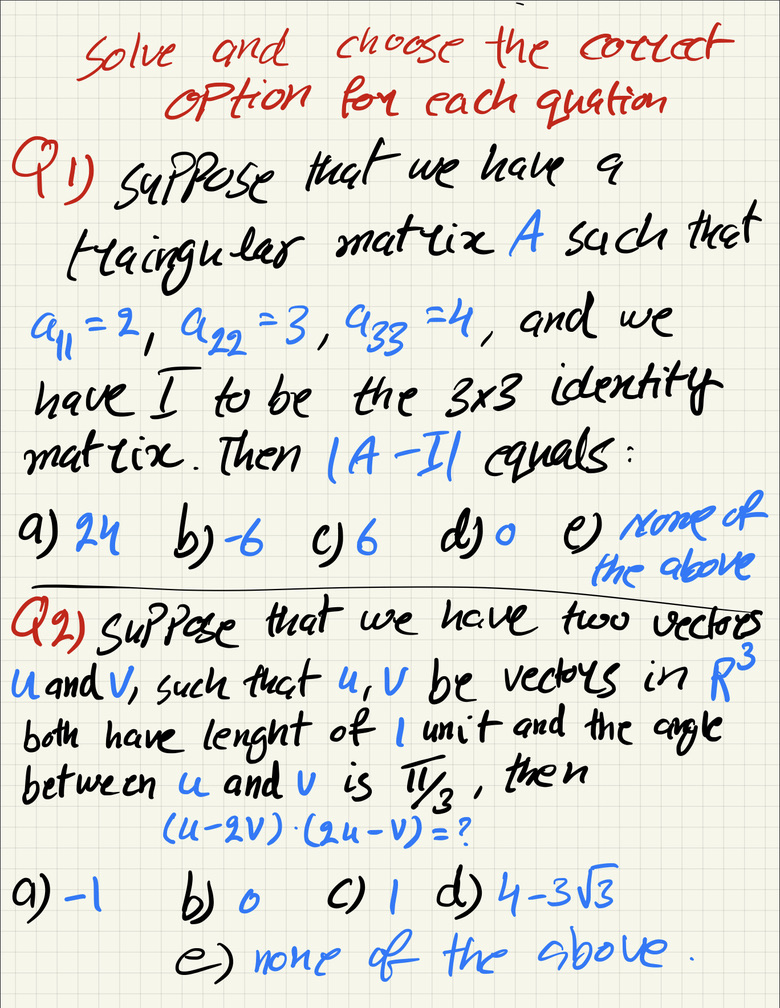 Solve and choose the correct
option for each quation
Q1) suppose that we have a
traingular matrix A such that
a₁₁ = 2, a₂₂ = 3, a₃₃ = 4, and we
have I to be the 3x3 identity
matrix. Then |A - I| equals:
a) 24 b) -6 c) 6 d) 0 e) none of
the above
Q2) suppose that we have two vectors
u and v, such that u, v be vectors in R³
both have lenght of 1 unit and the angle
between u and v is π/3, then
(u-2v)·(2u-v) = ?
a) -1 b) 0 c) 1 d) 4-3√3
e) none of the above.